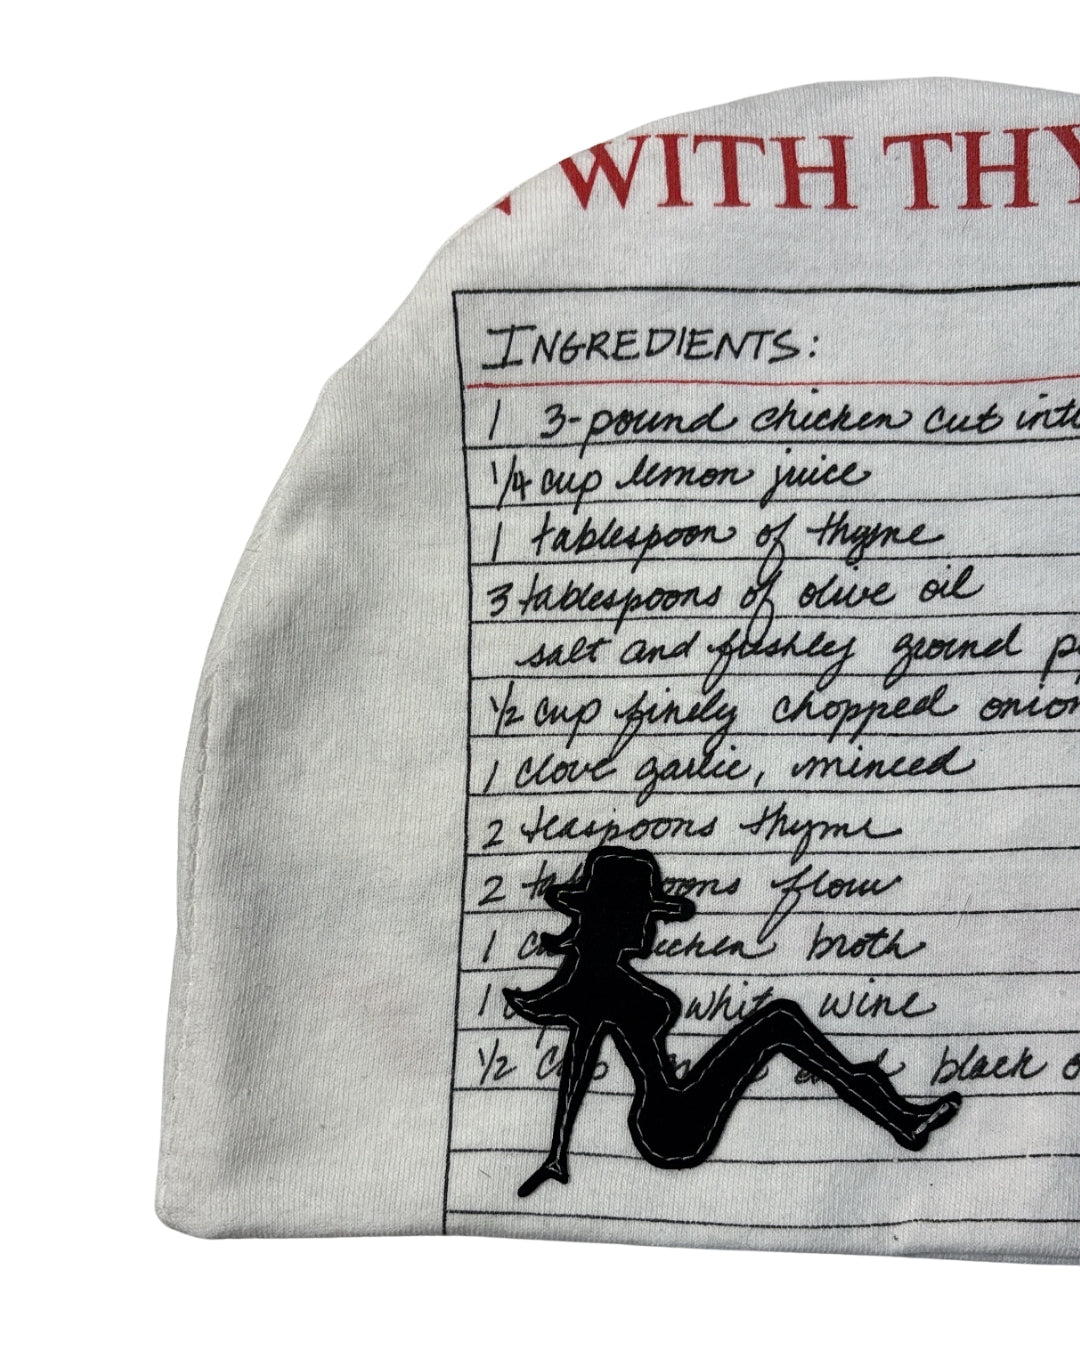 WITH THY
INGREDIENTS:
1 3-pound chicken cut into
1/4 cup lemon juice
1 tablespoon of thyme
3 tablespoons of olive oil
salt and freshley ground
1/2 cup finely chopped onion
1 clove garlic, minced
2 teaspoons thyme
2 flour
1 broth
1 white wine
1/2 black